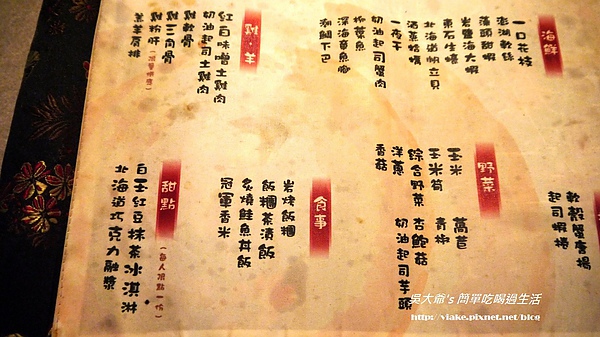 海鮮
一口花枝
澎湖軟絲
蒲頭甜蝦
岩鹽海大蝦
東石生蠔
北海道帆立貝
酒蒸蛤蠣
一夜干
奶油起司蟹肉
柳葉魚
深海章魚腳
潮鯛下巴
雞‧羊
紅白味噌土雞肉
奶油起司土雞肉
雞軟骨
雞三角骨
雞粉肝
羔羊肩排
軟殼蟹唐揚
起司蝦捲
野菜
玉米
玉米筍
綜合野菜
洋蔥
香菇
萵苣
青椒
杏鮑菇
奶油起司芋頭
食事
岩烤飯糰
飯糰茶漬飯
炙燒鮭魚丼飯
冠軍香米
甜點
(每人限點一份)
白玉紅豆抹茶冰淇淋
北海道巧克力融漿
吳大爺's 簡單吃喝過生活
http://vlake.pixnet.net/blog